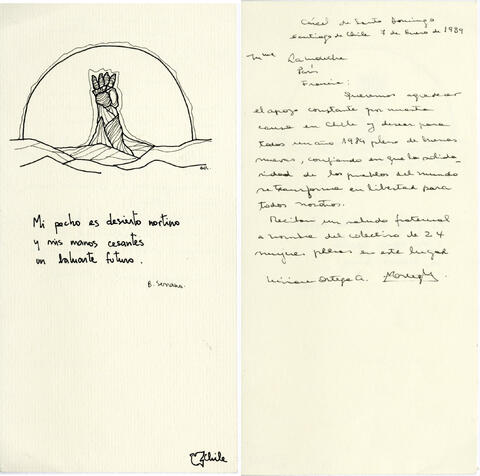 Mi pecho es desierto nortino
y mis manos cesantes
un baluarte futuro.
B. Serrano.
Chile
Cárcel de Santo Domingo
Santiago de Chile 7 de Enero de 1984
Mme Lamouche
París
Francia:
Queremos agradecer
el apoyo constante por nuestra
causa en Chile y desear para
todos un año 1984 pleno de buenas
nuevas, confiando en que la solida-
ridad de los pueblos del mundo
se transforme en libertad para
todos nosotros.
Reciban un saludo fraternal
a nombre del colectivo de 24
mujeres presas en este lugar
Miriam Ortega A.